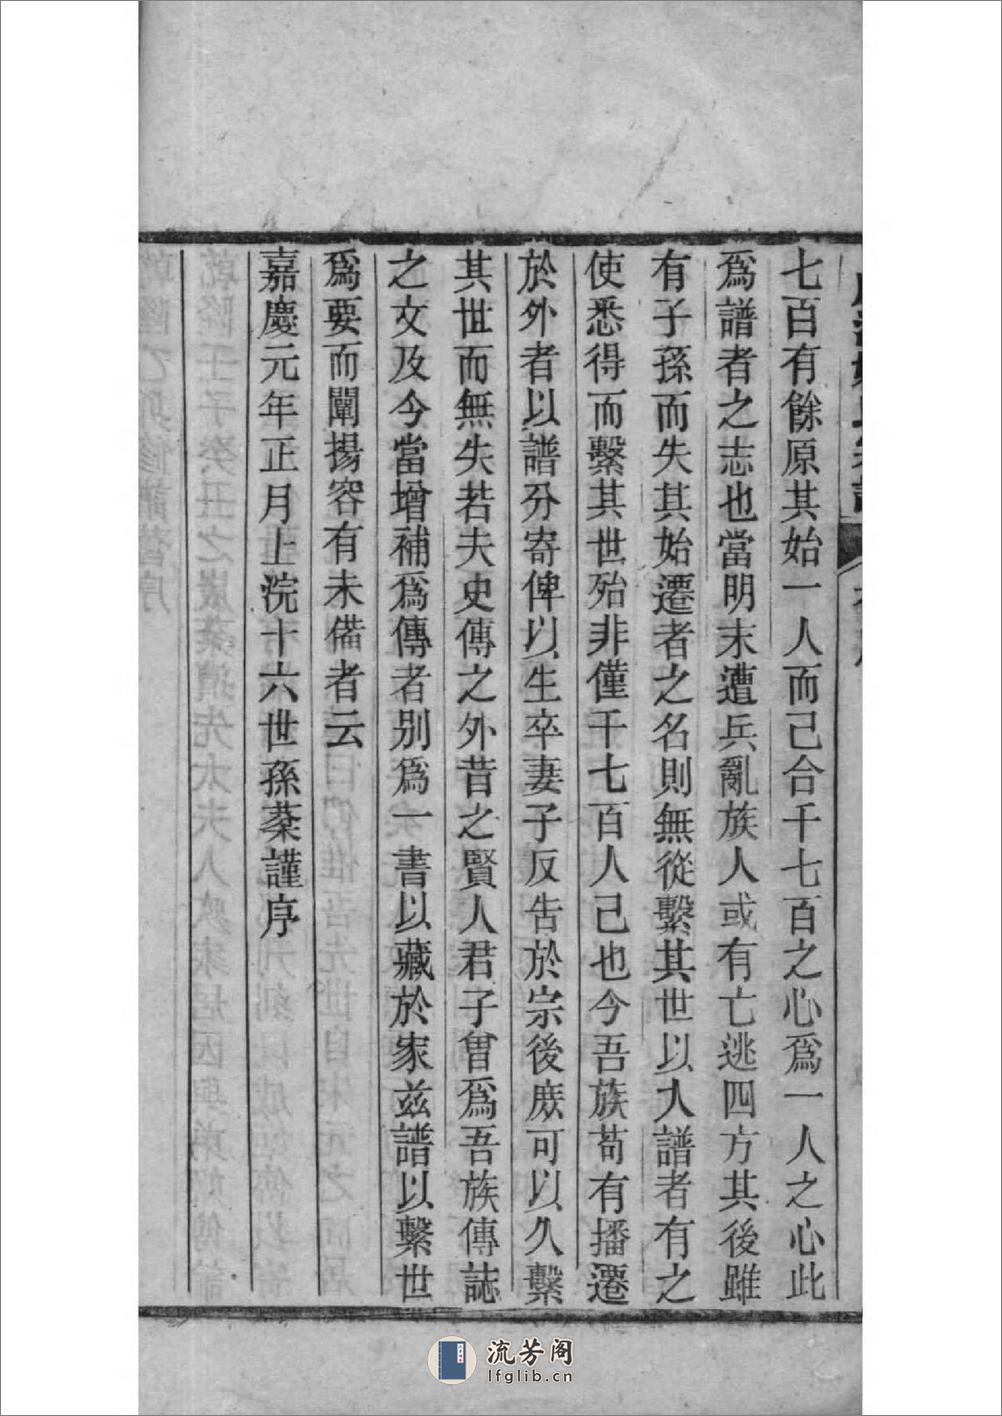 七百有餘原其始一人而已合千七百之心爲一人之心此
爲譜者之志也當明末遭兵亂族人或有亡逃四方其後雖
有子孫而失其始遷者之名則無從繫其世以入譜者有之
使悉得而繫其世殆非僅千七百人已也今吾族苟有播遷
於外者以譜分寄俾以生卒妻子反告於宗後庶可以久繫
其世而無失若夫史傳之外昔之賢人君子曾爲吾族傳誌
之文及今當增補爲傳者别爲一書以藏於家兹譜以繫世
爲要而闡揚容有未備者云
嘉慶元年正月上浣十六世孫棻謹序
流芳阁
lfglib.cn